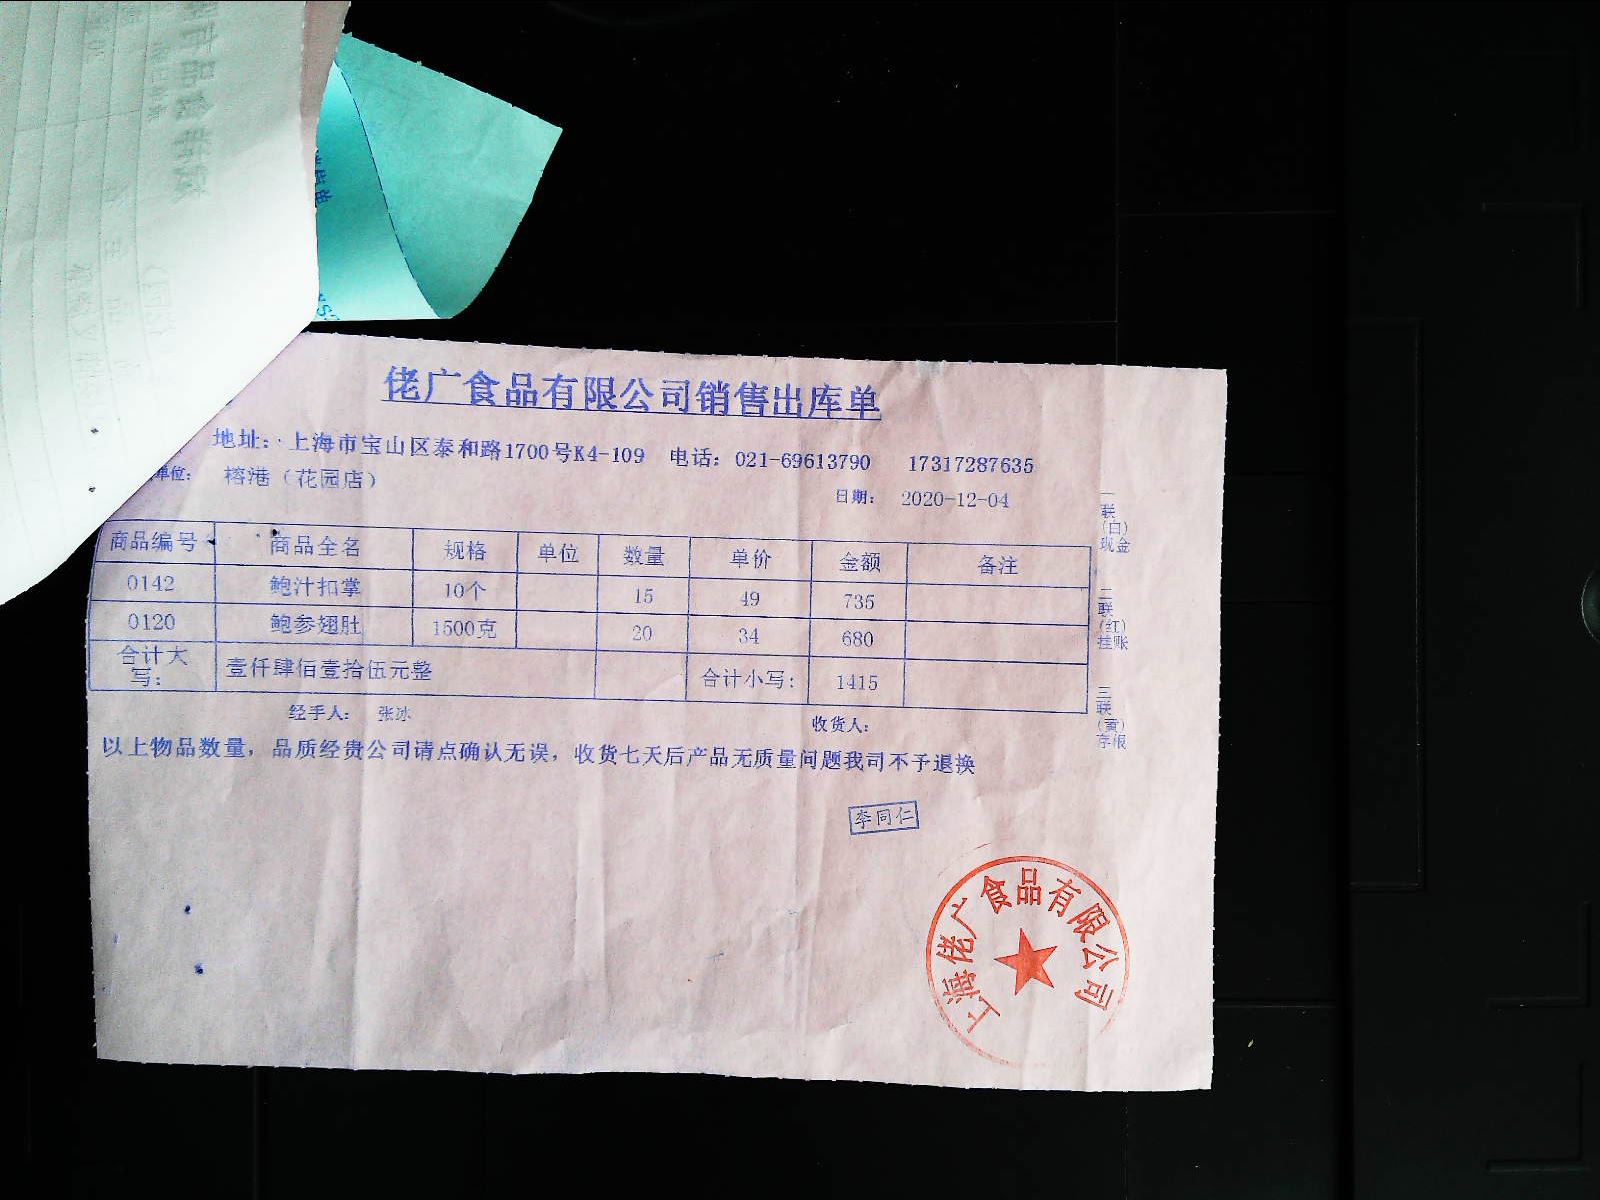 佬广食品有限公司销售出库单
地址: 上海市宝山区泰和路1700号K4-109 电话: 021-69613790 17317287635
单位: 榕港（花园店）
日期: 2020-12-04
商品编号 商品全名 规格 单位 数量 单价 金额 备注
0142 鲍汁扣掌 10个 15 49 735
0120 鲍参翅肚 1500克 20 34 680
合计大写: 壹仟肆佰壹拾伍元整 合计小写: 1415
经手人: 张冰 收货人:
以上物品数量, 品质经贵公司请点确认无误, 收货七天后产品无质量问题我司不予退换
一联(白)现金
二联(红)挂账
三联(黄)存根
李同仁
上海佬广食品有限公司